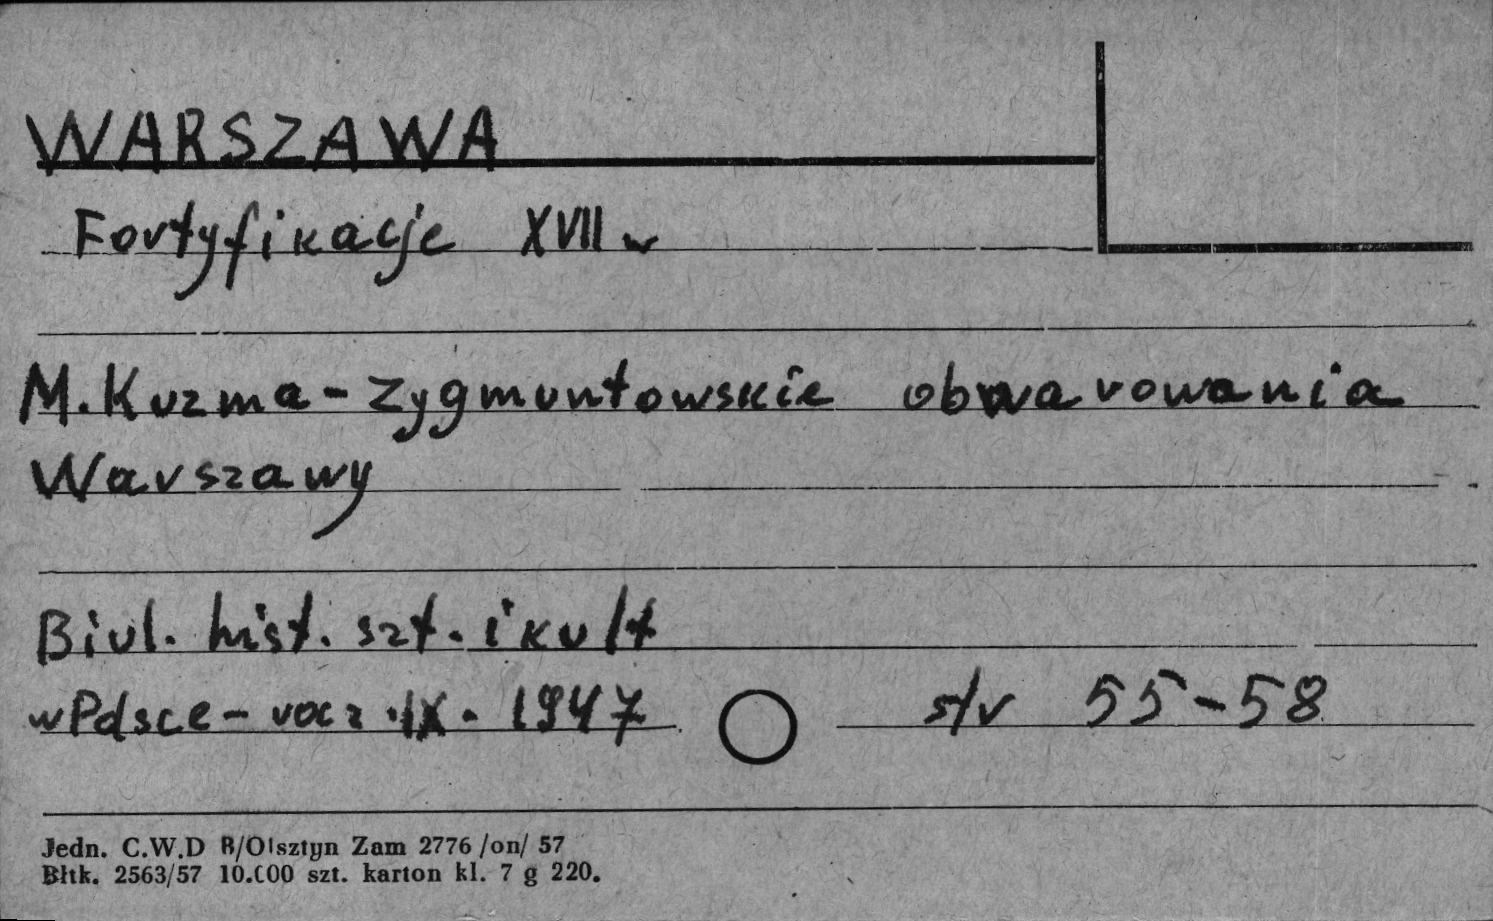 WARSZAWA
Fortyfikacje XVII w
M. Kuzma - Zygmuntowskie obwarowania
Warszawy
Biul. hist. szt. i kult
w Polsce - rocz. IX. 1947 str 55-58
Jedn. C.W.D B/Olsztyn Zam 2776 /on/ 57
Błtk. 2563/57 10.000 szt. karton kl. 7 g 220.